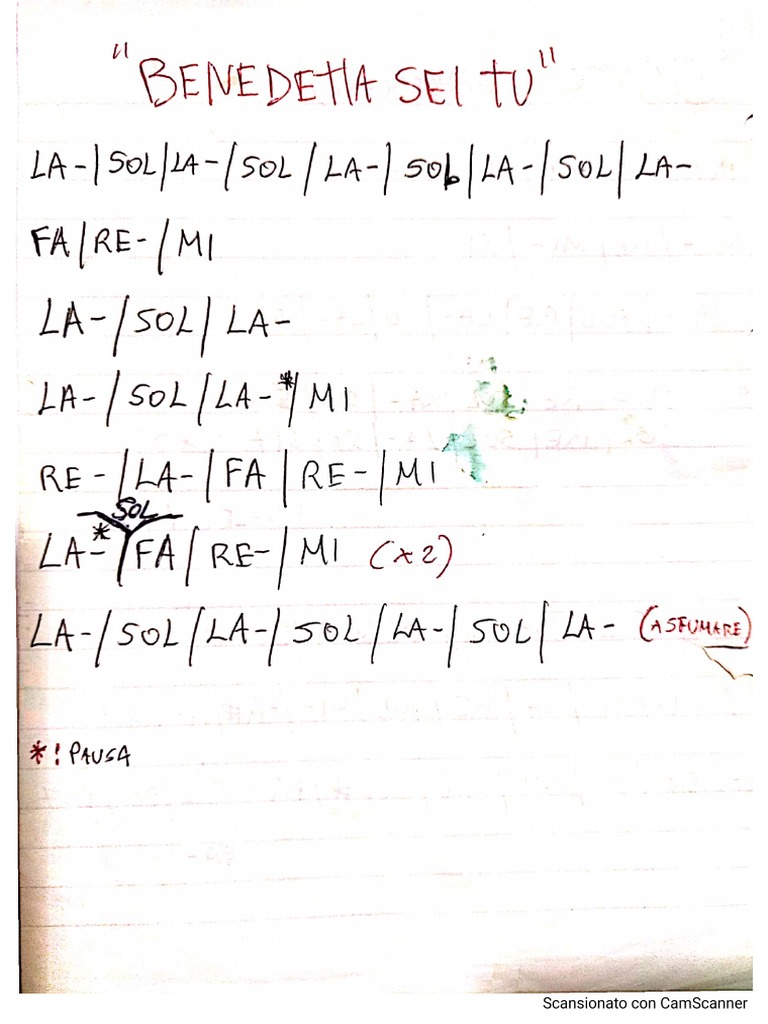 "BENEDETTA SEI TU"
LA-/SOL/LA-/SOL/LA-/SOL/LA-/SOL/LA-
FA/RE-/MI
LA-/SOL/LA-
LA-/SOL/LA-*/MI
RE-/LA-/FA/RE-/MI
SOL
LA-*/FA/RE-/MI (x2)
LA-/SOL/LA-/SOL/LA-/SOL/LA- (A SFUMARE)
*: PAUSA
Scansionato con CamScanner